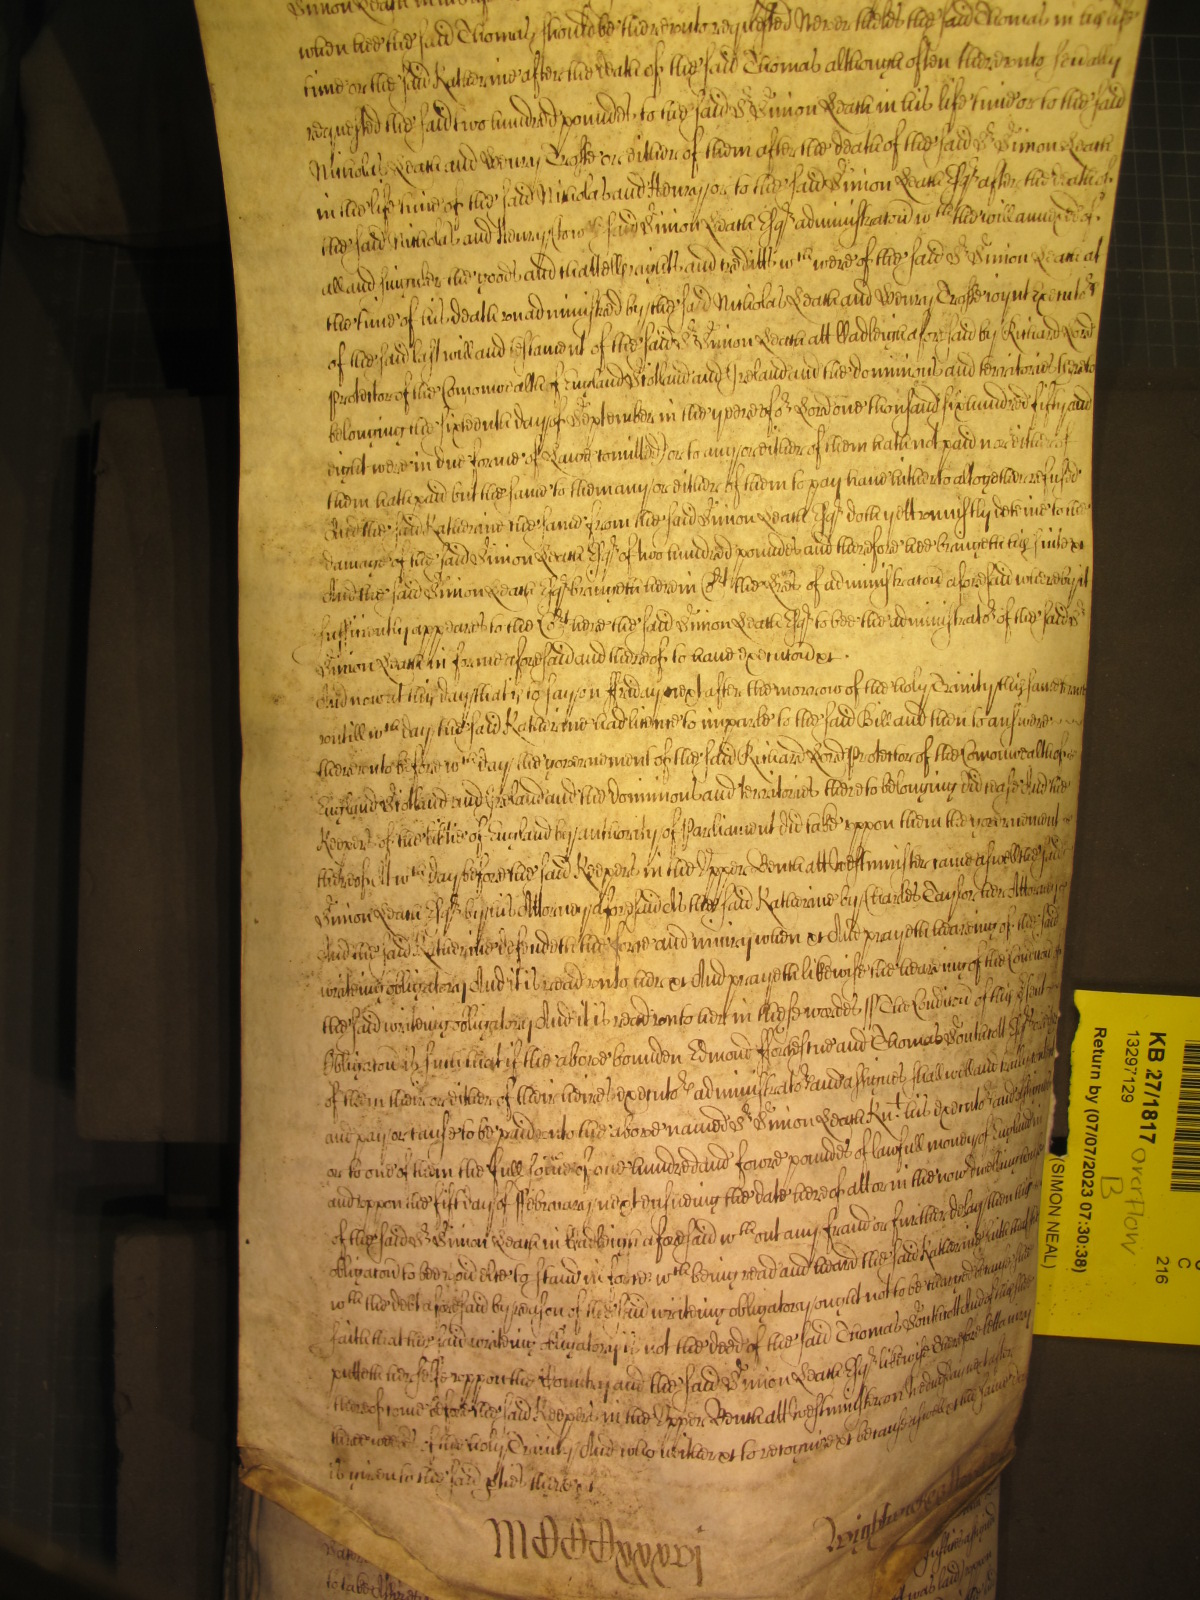 Simon Leach in
when hee the said Thomas should be thereunto requested Neverthelesse the said Thomas in his life
time or the said Katherine after the death of the said Thomas although often thereunto specially
requested the said two hundred poundes to the said Sr Simon Leach in his life time or to the said
Nicholas Leach and Henry Crosse or either of them after the death of the said Sr Simon Leach
in the life time of the said Nicholas and Henry or to the said Simon Leach Esqr after the death of
the said Nicholas and Henry (to wch said Simon Leach Esqr administracon wth the will annexed of
all and singuler the goods and chattells rights and creditts wch were of the said Sr Simon Leach at
the time of his death unadministred by the said Nicholas Leach and Henry Crosse ioynt executors
of the said last will and testament of the said Sr Simon Leach att Cadleigh aforesaid by Richard Lord
Protector of the Comonwealth of England Scotland and Ireland and the dominions and territories thereto
belonging the sixteenth day of September in the yeere of or Lord one thousand six hundred fifty and
eight were in due forme of Lawe comitted) or to any or either of them hath not paid nor either of
them hath paid but the same to them any or either of them to pay have hitherto altogether refused
And the said Katherine the same from the said Simon Leach Esqr doth yett uniustly deteine to the
damage of the said Simon Leach Esqr of two hundred poundes and therefore hee bringeth this suite &c
And the said Simon Leach Esqr bringeth here in Cort the Lres of administracon aforesaid whereby it
sufficiently appeares to the Cort here the said Simon Leach Esqr to bee the administrator of the said Sr
Simon Leach in forme aforesaid and thereof to have execucon &c.
And now at this day that is to say on ffriday next after the morrow of the holy Trinity this same terme
untill wch day the said Katherine had licence to imparle to the said Bill and then to answere
thereunto before wch day the government of the said Richard Lord Protector of the Comonwealth of
England Scotland and Ireland and the dominions and territories thereto belonging did cease And the
Keepers of the libtie of England by authority of Parliament did take uppon them the government
thereof At wch day before the said Keepers in the Upper Bench att Westminster came aswell the said
Simon Leach Esqr by his Attorney aforesaid As the said Katherine by Charles Taylor her Attorney
And the said Katherine defendeth the force and iniury when &c And prayeth heareing of the said
writeing obligatory And it is read unto her &c And prayeth likewise the heareing of the Condicon of
the said writeing obligatory And it is read unto her in these wordes ss The Condicon of this psent
Obligacon is such that if the above bounden Edmond ffortescue and Thomas Southcott Esqrs or
of them their or either of their heires executors administrators and assignes shall well and truly content
and pay or cause to be paid unto the above named Sr Simon Leach Knt his executors and assignes
or to one of them the full some of one hundred and fowre poundes of lawfull money of England in
and uppon the fift day of ffebruary next ensueing the date hereof att or in the now dwelling house
of the said Sr Simon Leach in Cadleigh aforesaid wthout any fraud or further delay then this
obligacon to bee void else to stand in force wch being read and heard the said Katherine saith that shee
wth the debt aforesaid by reason of the said writeing obligatory ought not to be charged because shee
saith that the said writeing obligatory is not the deed of the said Thomas Southcott And of this shee
putteth her selfe uppon the Country and the said Simon Leach Esqr likewise Therefore lett a iury
thereof come before the said Keepers in the Upper Bench att Westminster on Wednesday next after
three weekes of the holy Trinity And who neither &c to recognize &c because aswell &c the same day
is given to the said pties there &c
KB 27/1817 Overflow
B
13297129
Return by (07/07/2023 07:30:38)
(SIMON NEAL)
C
216